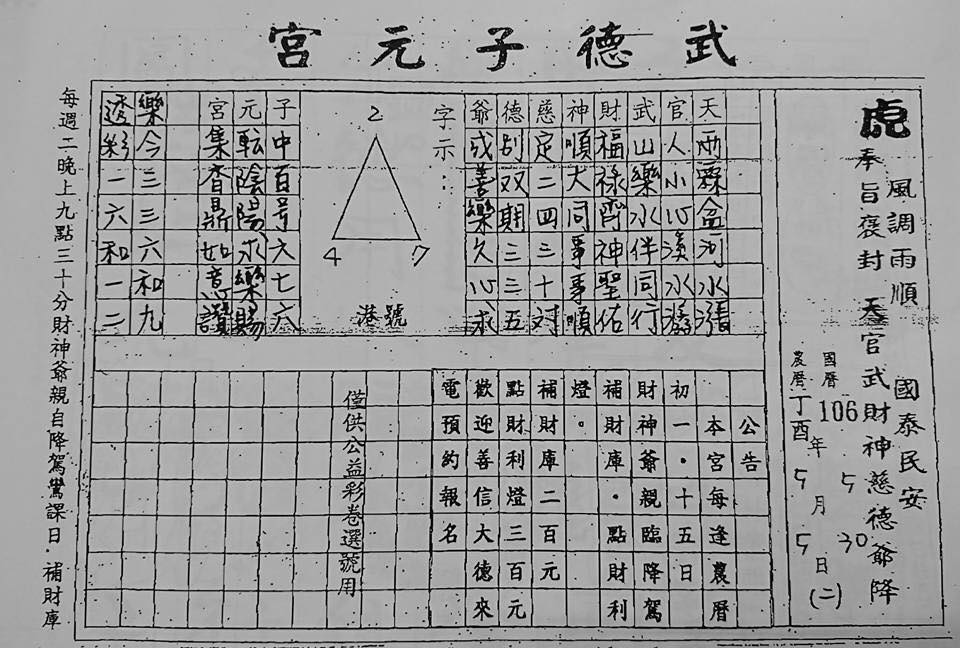 武德子元宮
虎
風調雨順 國泰民安
奉旨褒封 天官武財神慈德爺降
國曆 106 年 5 月 30 日 (二)
農曆 丁酉 5 5
天雨霖盆河水漲
官人小心溪水
武山樂水伴同行
財福祿齊神聖佑
神順大同事事順
慈定二四三十対
德別双期三三五
爺或善樂久心求
字示：
2
4 7
港號
子中百号六七六
元転陰陽求樂賜
宮集香鼎如意讚
樂今三三六和九
透彩一六和一二
公告
本宮每逢農曆
初一．十五日
財神爺親臨降駕
補財庫．點財利
燈。
補財庫二百元
點財利燈三百元
歡迎善信大德來
電預約報名
僅供公益彩卷選號用
每週二晚上九點三十分財神爺親自降駕鸞課日．補財庫